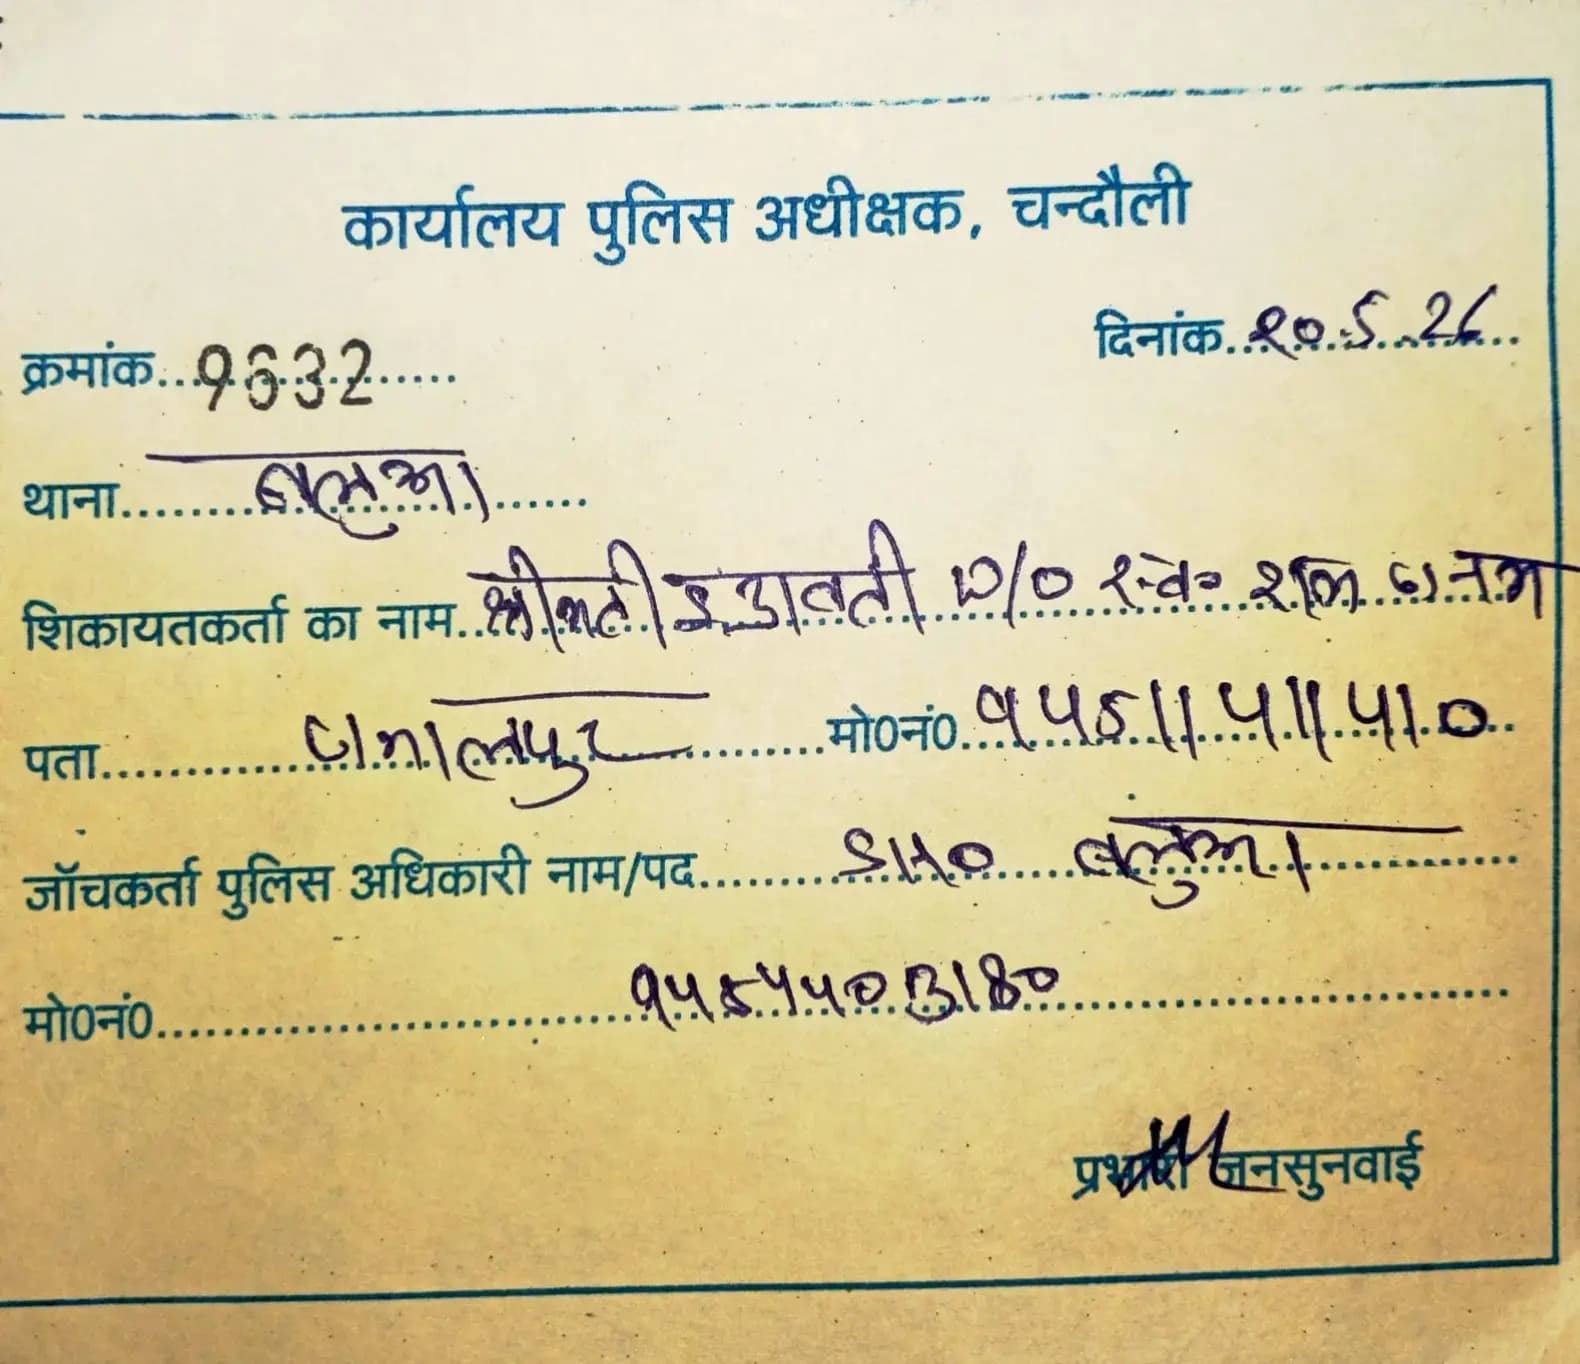 कार्यालय पुलिस अधीक्षक, चन्दौली
दिनांक 20.5.26
क्रमांक 9632
थाना बलुआ
शिकायतकर्ता का नाम श्रीमती इ W/O स्व०
पता मो०नं०
जॉचकर्ता पुलिस अधिकारी नाम/पद बलुआ
मो०नं० 9454403180
प्रभारी जनसुनवाई